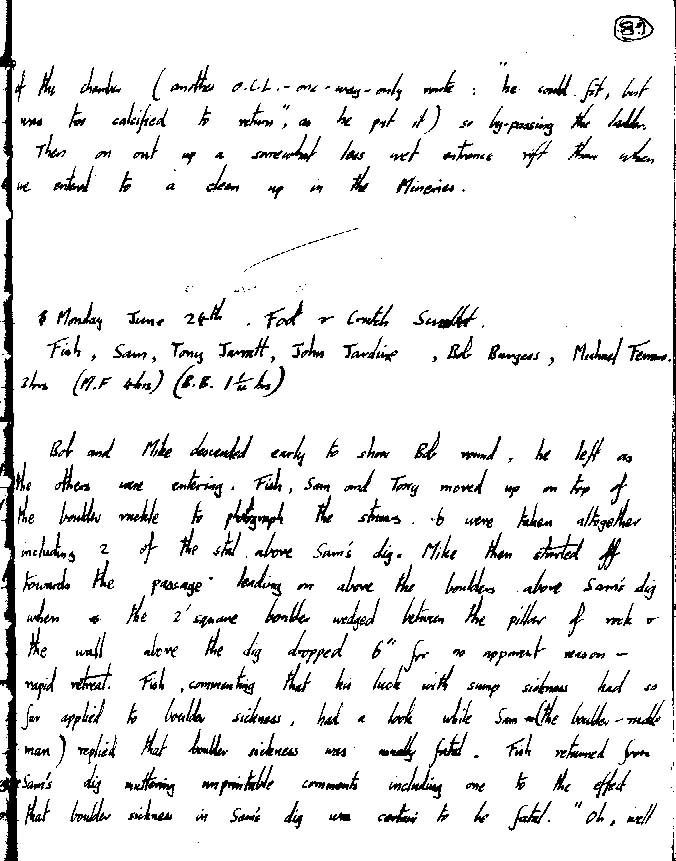 81
of the chamber ( another O.C.L. - one - way - only route : "he could fit, but
was too calcified to return", as he put it ) so by-passing the ladder.
Then on out up a somewhat less wet entrance rift than when
we entered to a clean up in the Mineries.
Monday June 24th . Foot & Crutch Swallet.
Fish, Sam, Tony Jarratt, John Jardine , Bob Burgess, Michael
2hrs (M.F 4hrs) (B.B. 1 ½ hrs)
Bob and Mike descended early to show Bob round, he left as
the others were entering. Fish, Sam and Tony moved up on top of
the boulder ruckle to photograph the straws. 6 were taken altogether
including 2 of the stal. above Sam's dig. Mike then started off
towards the passage leading on above the boulders above Sam's dig
when the 2' square boulder wedged between the pillar of rock &
the wall above the dig dropped 6" for no apparent reason -
rapid retreat. Fish, commenting that his luck with sump sickness had so
far applied to boulder sickness, had a look while Sam (the boulder - ruckle
man) replied that boulder sickness was usually fatal. Fish returned from
Sam's dig muttering unprintable comments including one to the effect
that boulder sickness in Sam's dig was certain to be fatal. "Oh, well